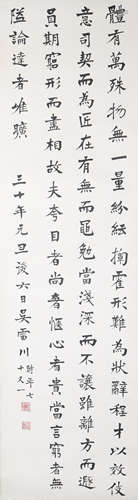 體有萬殊物無一量紛紜揮霍形難為狀辭程才以效伎
意司契而為匠在有無而僶勉當淺深而不讓雖離方而遯
員期窮形而盡相故夫夸目者尚奢愜心者貴當言窮者無
隘論達者唯曠
三十年元旦後六日吳雷川時年七
十又一